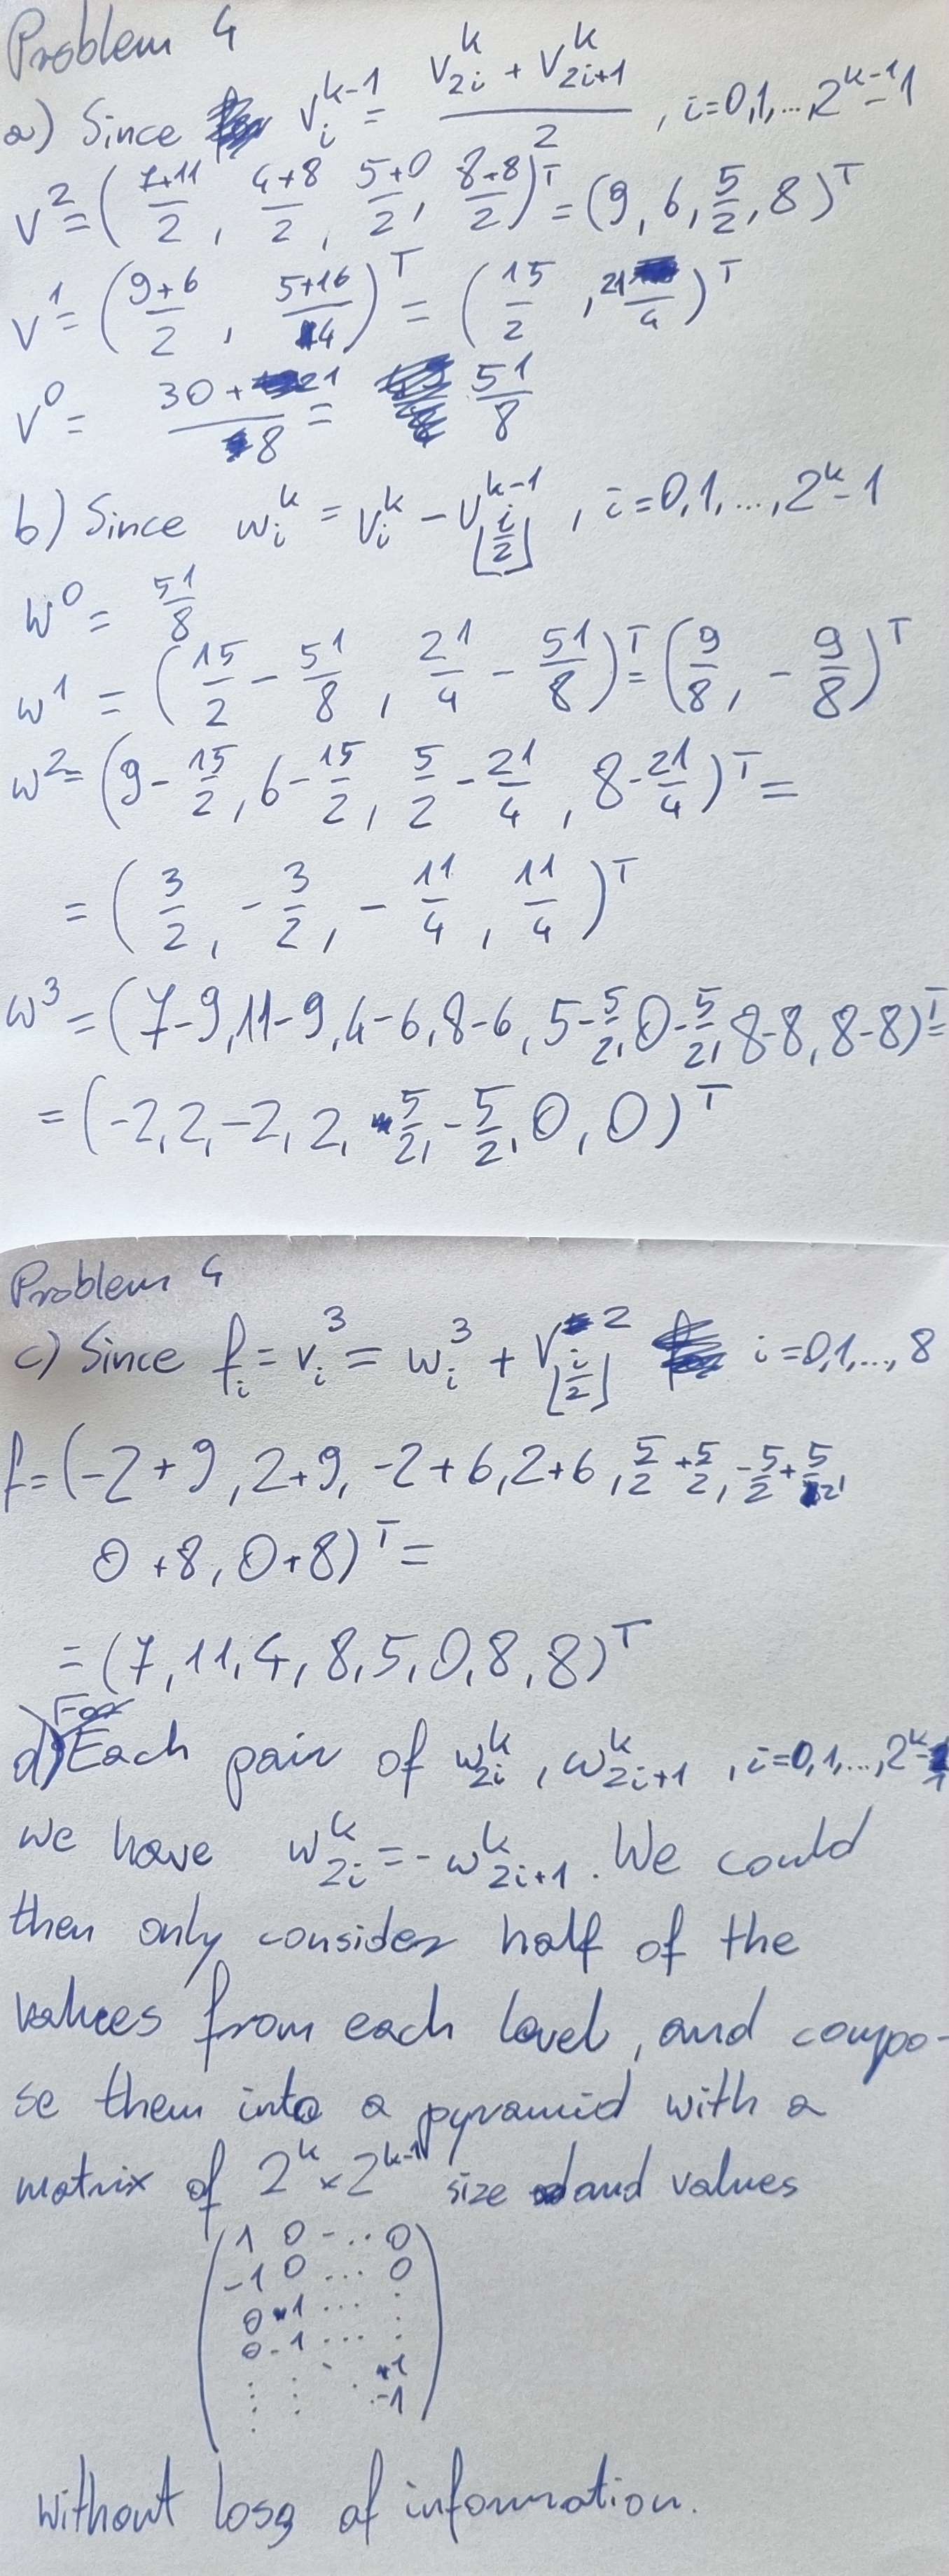 Problem 4
a) Since v_i^{k-1} = \frac{v_{2i}^k + v_{2i+1}^k}{2}, i=0,1,...,2^{k-1}-1
v^2 = (\frac{7+11}{2}, \frac{4+8}{2}, \frac{5+0}{2}, \frac{8+8}{2})^T = (9, 6, \frac{5}{2}, 8)^T
v^1 = (\frac{9+6}{2}, \frac{5+16}{4})^T = (\frac{15}{2}, \frac{21}{4})^T
v^0 = \frac{30+21}{8} = \frac{51}{8}
b) Since w_i^k = v_i^k - v_{⌊\frac{i}{2}⌋}^{k-1}, i=0,1,...,2^k-1
w^0 = \frac{51}{8}
w^1 = (\frac{15}{2} - \frac{51}{8}, \frac{21}{4} - \frac{51}{8})^T = (\frac{9}{8}, -\frac{9}{8})^T
w^2 = (9-\frac{15}{2}, 6-\frac{15}{2}, \frac{5}{2}-\frac{21}{4}, 8-\frac{21}{4})^T =
= (\frac{3}{2}, -\frac{3}{2}, -\frac{11}{4}, \frac{11}{4})^T
w^3 = (7-9, 11-9, 4-6, 8-6, 5-\frac{5}{2}, 0-\frac{5}{2}, 8-8, 8-8)^T =
= (-2, 2, -2, 2, \frac{5}{2}, -\frac{5}{2}, 0, 0)^T
Problem 4
c) Since f_i = v_i^3 = w_i^3 + v_{⌊\frac{i}{2}⌋}^2 i=0,1,...,8
f = (-2+9, 2+9, -2+6, 2+6, \frac{5}{2}+\frac{5}{2}, -\frac{5}{2}+\frac{5}{2},
0+8, 0+8)^T =
= (7, 11, 4, 8, 5, 0, 8, 8)^T
d) Each pair of w_{2i}^k, w_{2i+1}^k, i=0,1,...,2^{k-1}
we have w_{2i}^k = -w_{2i+1}^k. We could
then only consider half of the
values from each level, and compo-
se them into a pyramid with a
matrix of 2^k × 2^{k-1} size and values
1 0 ... 0
-1 0 ... 0
0 1 ... .
0 -1 ... .
: : . 1
: : . -1
without loss of information.